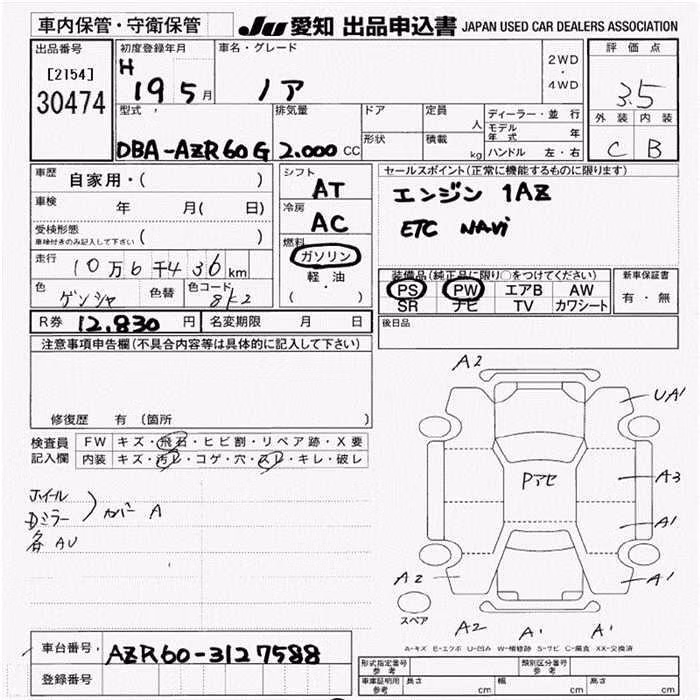 車内保管・守衛保管
JU 愛知 出品申込書 JAPAN USED CAR DEALERS ASSOCIATION
出品番号
[2154]
30474
初度登録年月
H 19 5月
車名・グレード
ノア
2WD
・
4WD
評価点
3.5
外装 内装
C B
型式
DBA-AZR60G
排気量
2.000 CC
ドア
形状
定員 人
積載 kg
ディーラー・並行
モデル年式 年
ハンドル 左・右
車歴 自家用・( )
車検 年 月( 日)
受検形態
車検付きのみ記入して下さい ( )
走行 10万6千436km
色 ゲンシャ 色替 色コード 8K2
シフト
AT
冷房
AC
燃料
ガソリン
軽・油
( )
セールスポイント(正常に機能するものに限ります)
エンジン 1AZ
ETC NAVi
装備品(純正品に限り○をつけてください)
PS PW エアB AW
SR ナビ TV カワシート
新車保証書
有・無
R券 12,830 円 名変期限 月 日
後日品
注意事項申告欄(不具合内容等は具体的に記入して下さい)
修復歴 有 (箇所 )
検査員
記入欄
FW キズ・飛石・ヒビ割・リペア跡・X要
内装 キズ・汚レ・コゲ・穴・スレ・キレ・破レ
ホイール
Dミラー ) カバー A
各 AU
A2
UA1
Pアセ
A3
A1
A2
A1
スペア
A2 A1 A1
A-キズ E-エクボ U-凹み W-補修跡 S-サビ C-腐食 XX-交換済
車台番号 AZR60-3127588
登録番号
形式指定番号
参考
類別区分番号
参考
車庫証明用
参考
長さ cm 幅 cm 高さ cm